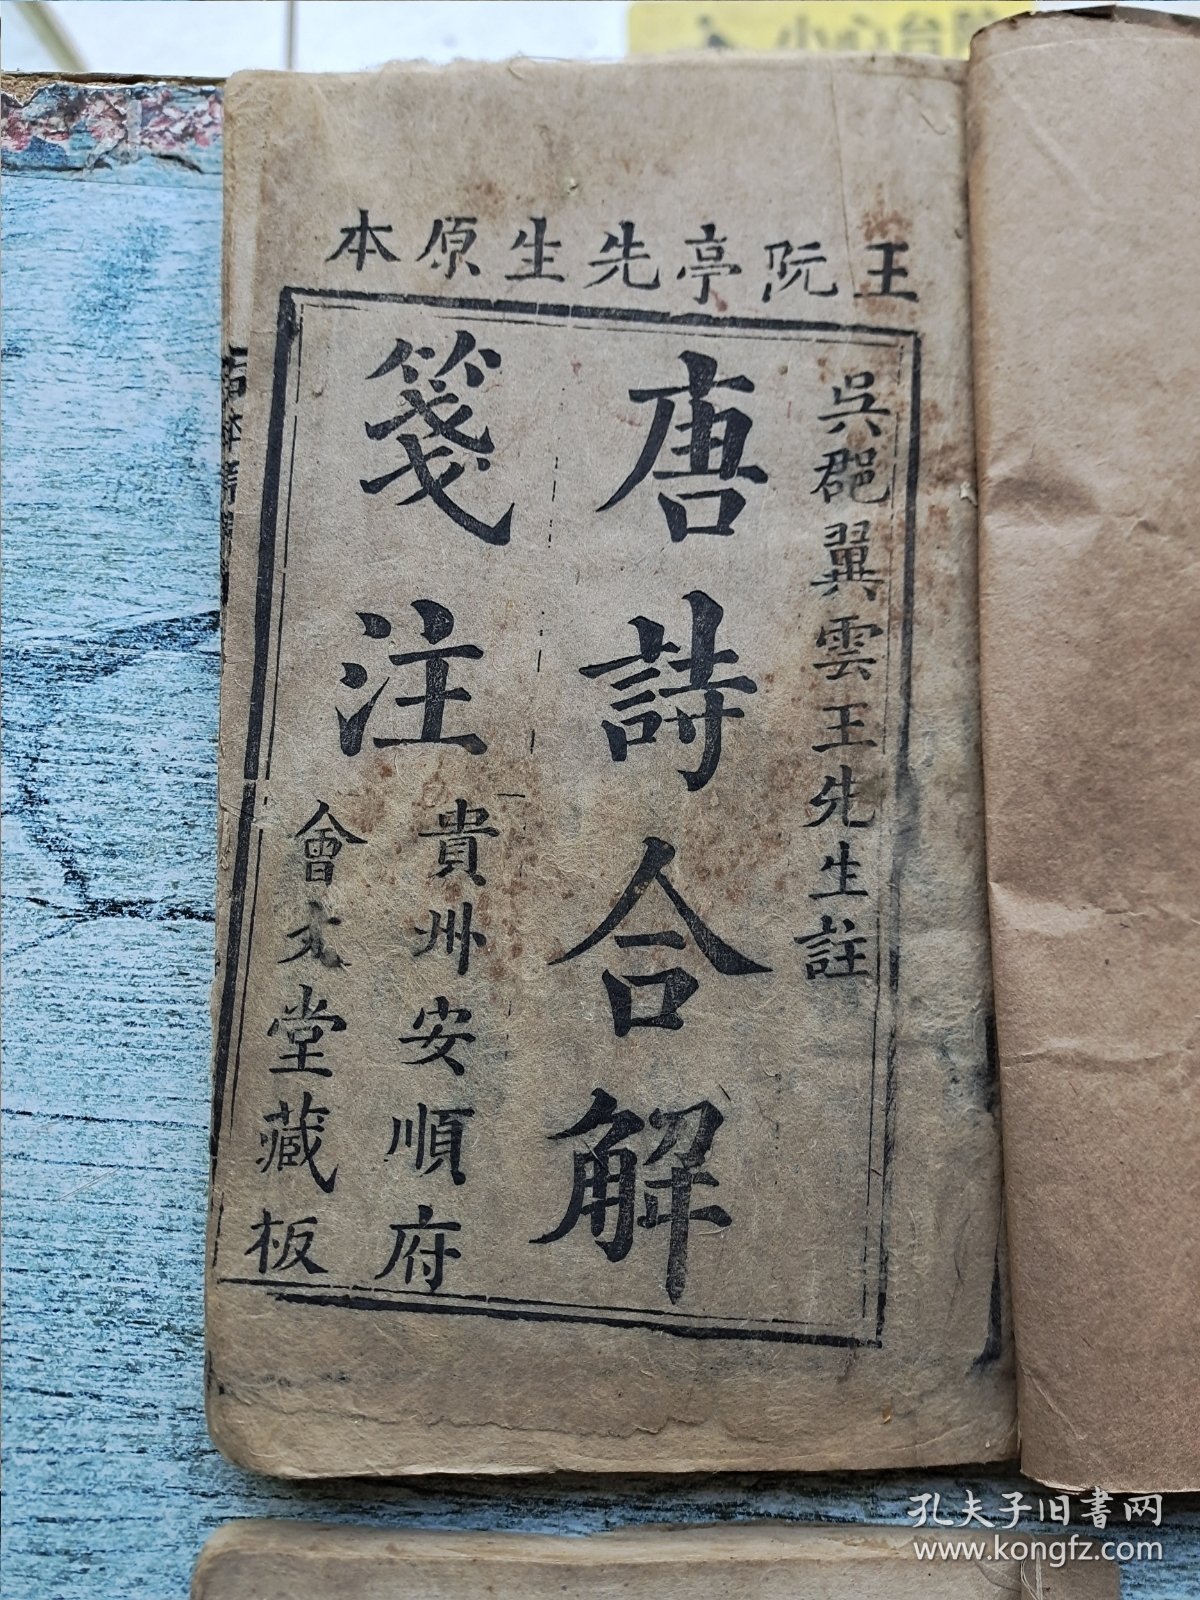 小心台阶
王阮亭先生原本
吳郡翼雲王先生註
唐詩合解
箋注
貴州安順府
會文堂藏板
孔夫子旧书网
www.kongfz.com